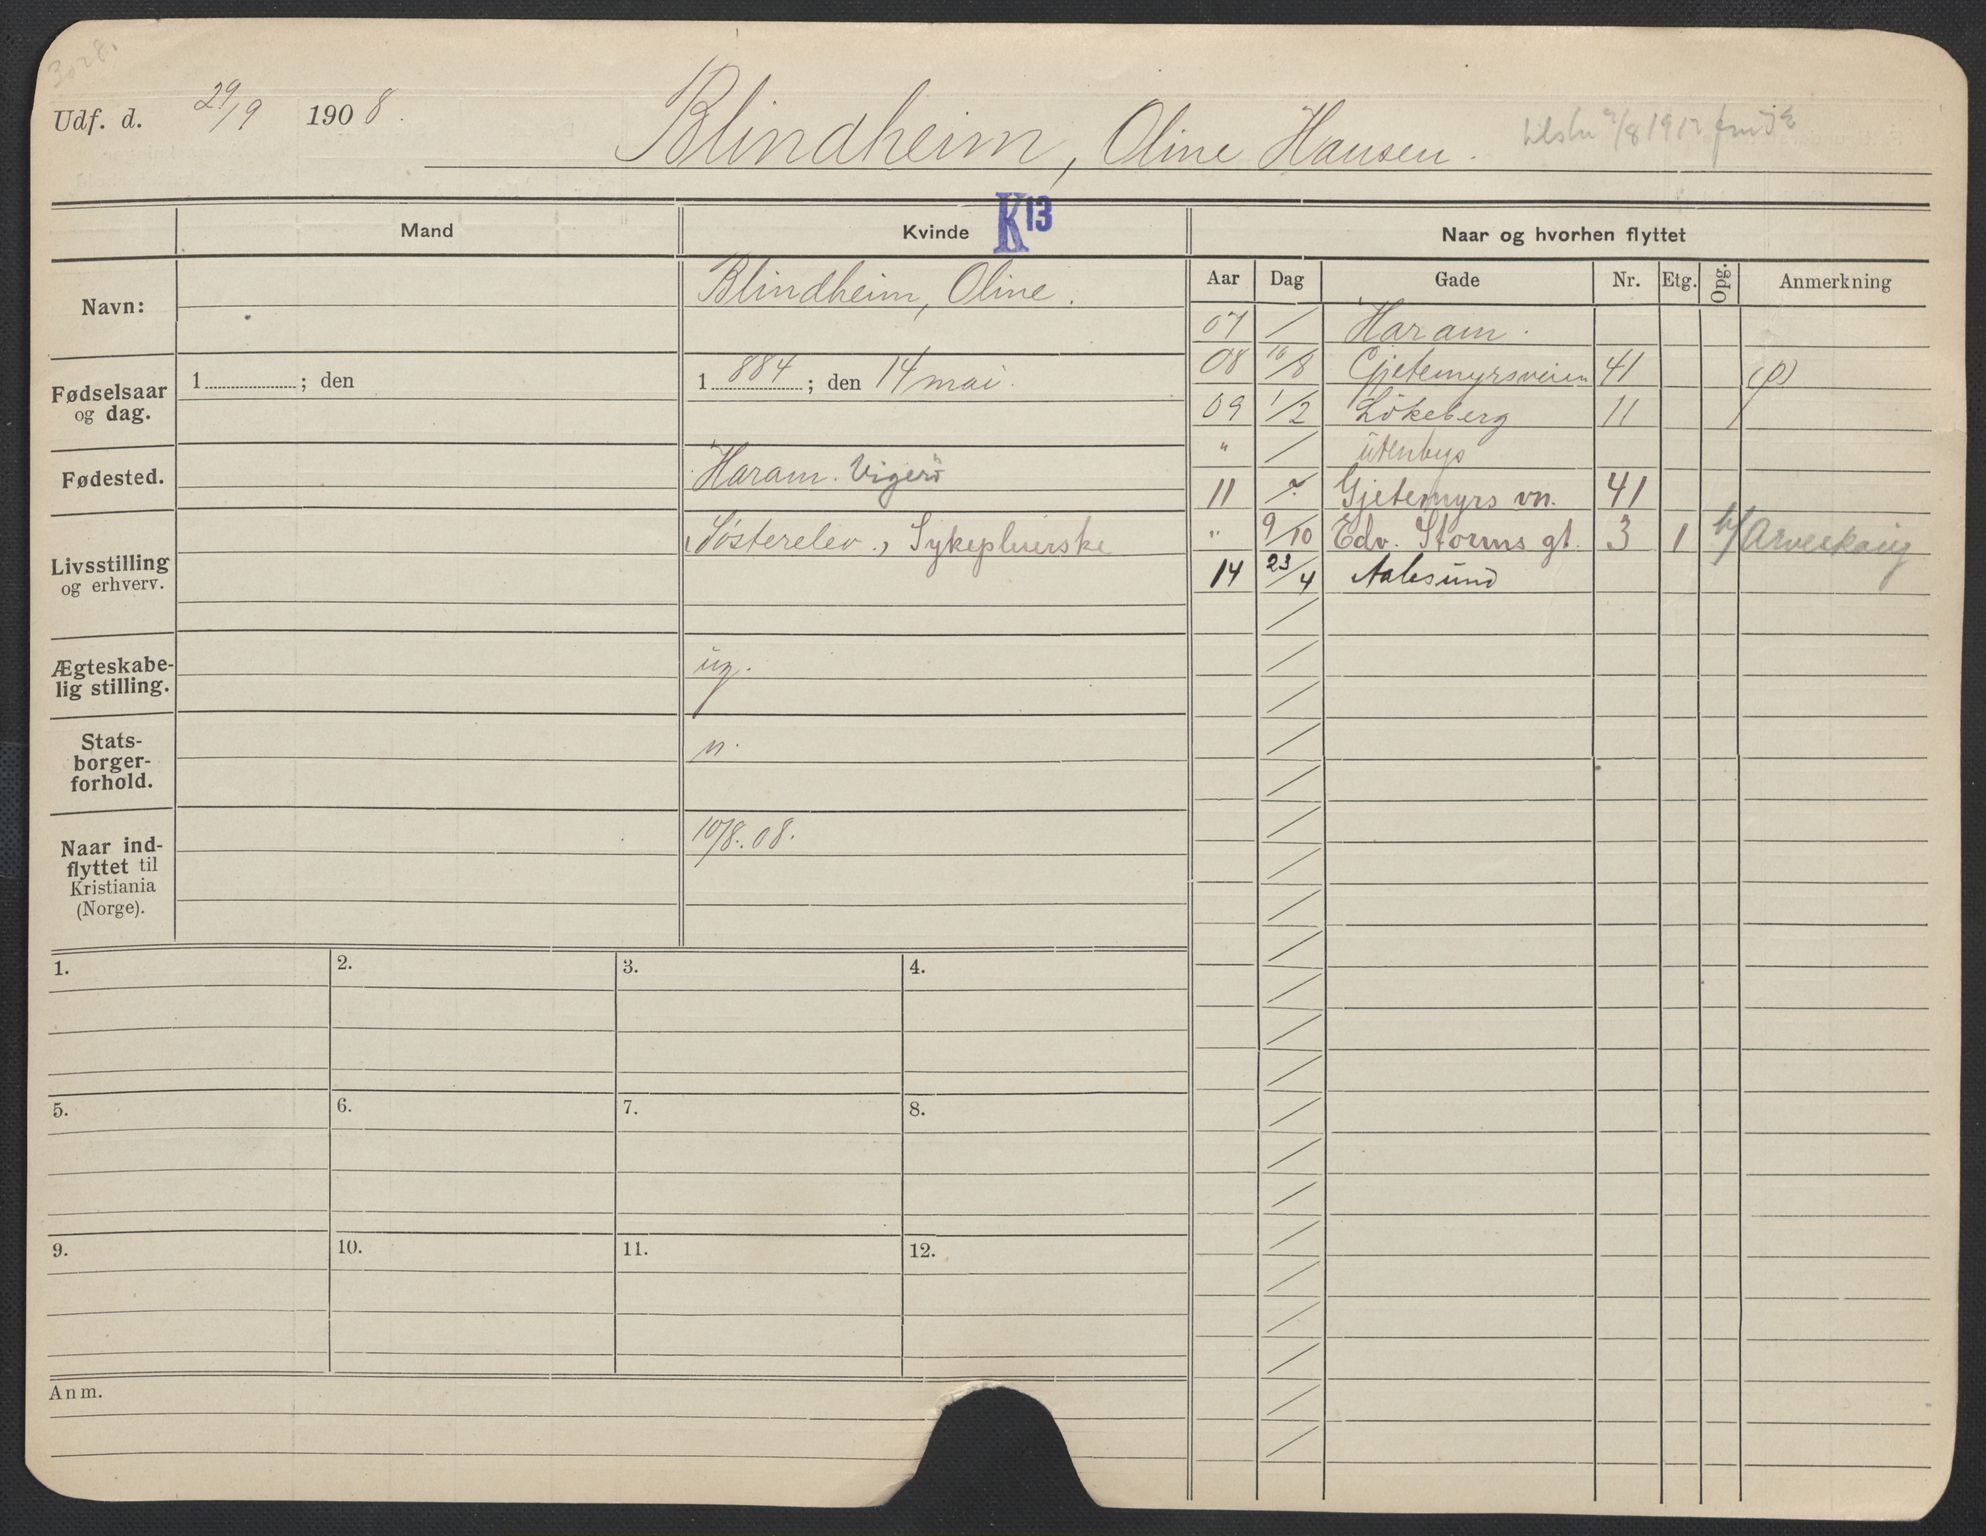 3028.
Udf. d. 29/9 1908.
Blindheim, Oline Hansen.
K13
Mand
Kvinde
Naar og hvorhen flyttet
Aar Dag Gade Nr. Etg. Opg. Anmerkning
Navn:
Blindheim, Oline.
Fødselsaar
og dag.
1 ; den
1 884 ; den 14 mai.
Fødested.
Haram. Vigerö
Livsstilling
og erhverv.
Søsterelev., Sykepleierske
Ægteskabe-
lig stilling.
ug.
Stats-
borger-
forhold.
n.
Naar ind-
flyttet til
Kristiania
(Norge).
10/8.08.
07 / Haram.
08 10/8 Gjetemyrsveien 41 (P)
09 1/2 Lökeberg 11
" / utenbys
11 / Gjetemyrs vn. 41
" 9/10 Edv. Storms gt. 3 1
14 23/4 Aalesund
1.
2.
3.
4.
5.
6.
7.
8.
9.
10.
11.
12.
Anm.